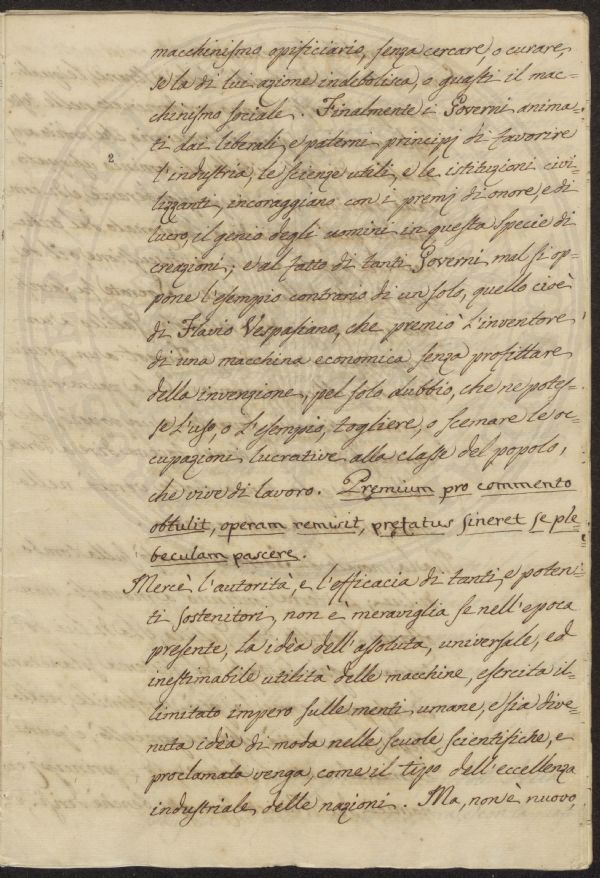 macchinismo opificiario, senza cercare, o curare,
se la di lui azione indebolisca, o guasti il mac=
chinismo sociale. Finalmente i Governi anima=
ti dai liberali, e paterni principj di favorire
2
l'industria, le scienze utili, e le istituzioni civi=
lizzanti, incoraggiano con i premj di onore, e di
lucro, il genio degli uomini in questa specie di
creazioni; e al fatto di tanti Governi mal si op=
pone l'esempio contrario di un solo, quello cioè
di Flavio Vespasiano, che premiò l'inventore
di una macchina economica senza profittare
della invenzione, pel solo dubbio, che ne potes=
se l'uso, o l'esempio, togliere, o scemare le oc=
cupazioni lucrative alla classe del popolo,
che vive di lavoro. Premium pro commento
obtulit, operam remisit, prefatus sineret se ple=
beculam pascere.
Mercè l'autorità, e l'efficacia di tanti, e poten=
ti sostenitori, non è meraviglia se nell'epoca
presente, la idèa dell'assoluta, universale, ed
inestimabile utilità delle macchine, esercita il=
limitato impero sulle menti umane, e sia dive=
nuta idèa di moda nelle scuole scientifiche, e
proclamata venga, come il tipo dell'eccellenza
industriale delle nazioni. Ma, non è nuovo,